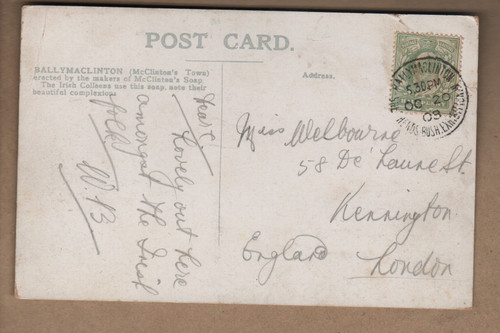 POST CARD.
BALLYMACLINTON (McClinton's Town)
erected by the makers of McClinton's Soap.
The Irish Colleens use this soap, note their
beautiful complexions
Address.
Dear C.
Lovely out here
amongst the Irish
folk
W. B
Miss Melbourne
58 De' Laune St.
Kennington
England London
BALLYMACLINTON
5.30 PM
OC 20
08